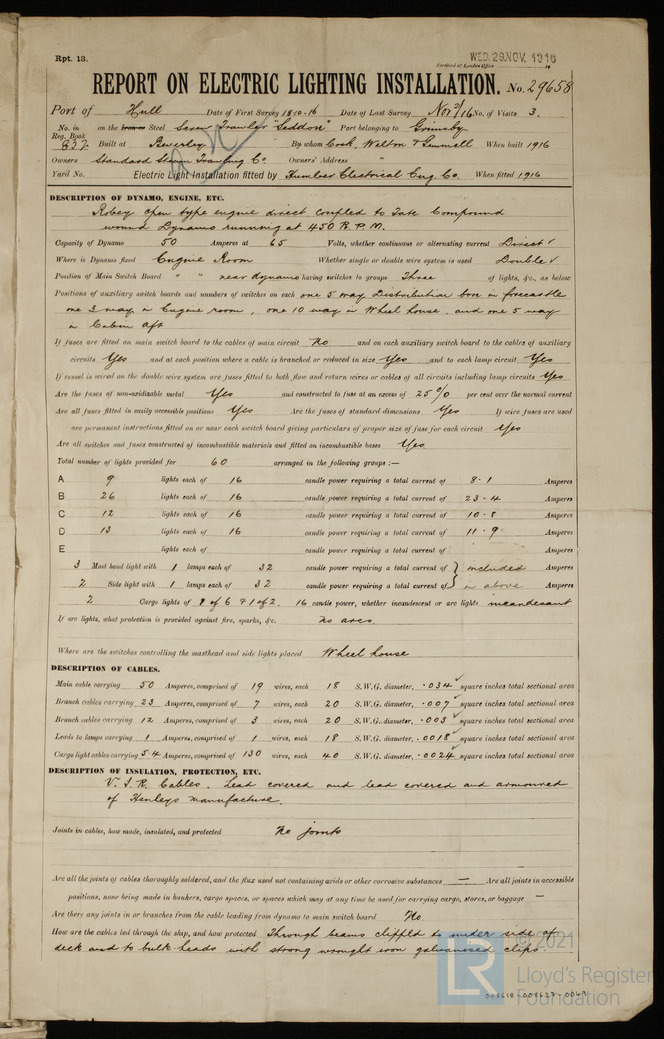 Rpt. 13.
WED. 29 NOV. 1916
Received at London Office
REPORT ON ELECTRIC LIGHTING INSTALLATION. No. 29658
Port of Hull Date of First Survey 18-10-16 Date of Last Survey Nov 2/16 No. of Visits 3.
No. in Reg. Book 832 on the Iron or Steel Screw Trawler "Seddon" Port belonging to Grimsby
Built at Beverley By whom Cook, Welton & Gemmell When built 1916
Owners Standard Steam Trawling Co. Owners' Address "
Yard No. Electric Light Installation fitted by Humber Electrical Eng. Co. When fitted 1916
DESCRIPTION OF DYNAMO, ENGINE, ETC.
Robey open type engine direct coupled to Tate Compound
wound Dynamo running at 450 R.P.M.
Capacity of Dynamo 50 Amperes at 65 Volts, whether continuous or alternating current Direct ✓
Where is Dynamo fixed Engine Room Whether single or double wire system is used Double ✓
Position of Main Switch Board " " near dynamo having switches to groups Three of lights, &c., as below
Positions of auxiliary switch boards and numbers of switches on each one 5 way Distribution box in forecastle
one 3 way in Engine room, one 10 way in Wheel house, and one 5 way
in Cabin aft
If fuses are fitted on main switch board to the cables of main circuit No and on each auxiliary switch board to the cables of auxiliary
circuits Yes and at each position where a cable is branched or reduced in size Yes and to each lamp circuit Yes
If vessel is wired on the double wire system are fuses fitted to both flow and return wires or cables of all circuits including lamp circuits Yes
Are the fuses of non-oxidizable metal Yes and constructed to fuse at an excess of 25 % per cent over the normal current
Are all fuses fitted in easily accessible positions Yes Are the fuses of standard dimensions Yes If wire fuses are used
are permanent instructions fitted on or near each switch board giving particulars of proper size of fuse for each circuit Yes
Are all switches and fuses constructed of incombustible materials and fitted on incombustible bases Yes
Total number of lights provided for 60 arranged in the following groups :—
A 9 lights each of 16 candle power requiring a total current of 8.1 Amperes
B 26 lights each of 16 candle power requiring a total current of 23.4 Amperes
C 12 lights each of 16 candle power requiring a total current of 10.8 Amperes
D 13 lights each of 16 candle power requiring a total current of 11.9 Amperes
E lights each of candle power requiring a total current of Amperes
3 Mast head light with 1 lamps each of 32 candle power requiring a total current of included Amperes
2 Side light with 1 lamps each of 32 candle power requiring a total current of in above Amperes
2 Cargo lights of 1 of 6 & 1 of 2. 16 candle power, whether incandescent or arc lights incandesant
If arc lights, what protection is provided against fire, sparks, &c. no arcs
Where are the switches controlling the masthead and side lights placed Wheel house
DESCRIPTION OF CABLES.
Main cable carrying 50 Amperes, comprised of 19 wires, each 18 S.W.G. diameter, .034 square inches total sectional area
Branch cables carrying 23 Amperes, comprised of 7 wires, each 20 S.W.G. diameter, .007 square inches total sectional area
Branch cables carrying 12 Amperes, comprised of 3 wires, each 20 S.W.G. diameter, .003 square inches total sectional area
Leads to lamps carrying 1 Amperes, comprised of 1 wires, each 18 S.W.G. diameter, .0018 square inches total sectional area
Cargo light cables carrying 5.4 Amperes, comprised of 130 wires, each 40 S.W.G. diameter, .0024 square inches total sectional area
DESCRIPTION OF INSULATION, PROTECTION, ETC.
V.I.R. Cables. Lead covered and lead covered and armoured
of Henleys manufacture.
Joints in cables, how made, insulated, and protected no joints
Are all the joints of cables thoroughly soldered, and the flux used not containing acids or other corrosive substances — Are all joints in accessible
positions, none being made in bunkers, cargo spaces, or spaces which may at any time be used for carrying cargo, stores, or baggage —
Are there any joints in or branches from the cable leading from dynamo to main switch board No
How are the cables led through the ship, and how protected Through beams clipped to under side of
deck and to bulk heads with strong wrought iron galvanised clips.
© 2021
LR
Lloyd's Register
Foundation